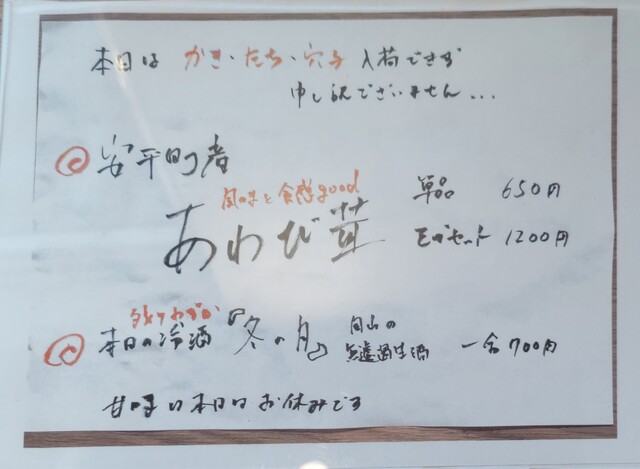 本日は かき・たち・穴子 入荷できず
申し訳ございません...
安平町産
風味と食感good
あわび茸
単品 650円
モリセット 1200円
残りわずか
本日の冷酒『冬の月』 岡山の
無濾過生酒 一合 700円
甘味は本日はお休みです